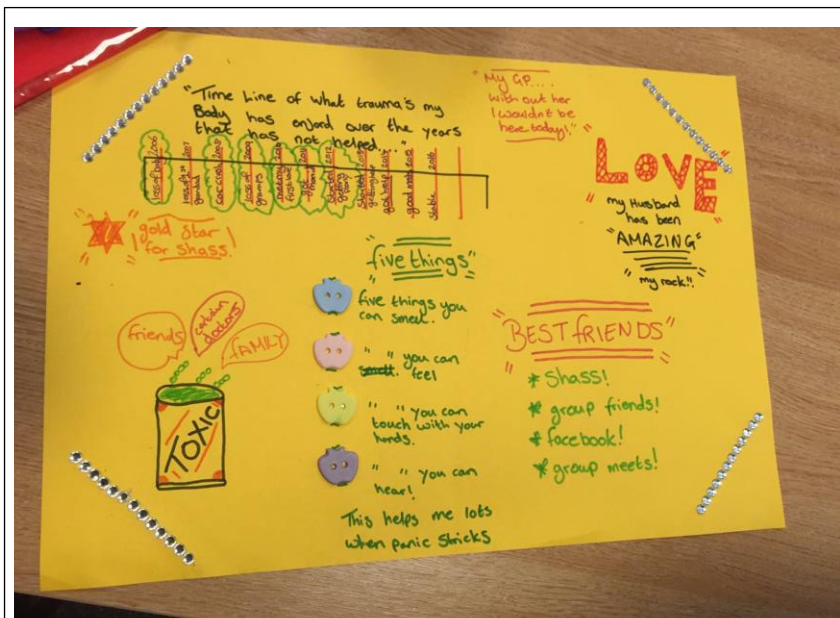 "Time Line of what trauma's my
Body has enjord over the years
that has not helped..."
loss of baby 2006
loss of 1st grandad 2007
car crash 2008
loss of gramps 2009
first love 2010
got 2011
started getting 2012
started getting help 2013
got help 2014
good meds 2015
stable 2016
"My GP....
with out her
I wouldn't be
here today!"
LOVE
my Husband
has been
"AMAZING"
"my rock!"
gold star
for shass.
friends
certain doctors
FAMILY
TOXIC
"five things"
five things you
can smell.
" " you can
feel
" " you can
touch with your
hands.
" " you can
hear!
This helps me lots
when panic stricks
"BEST fRiENDS"
* Shass!
* group friends!
* facebook!
* group meets!